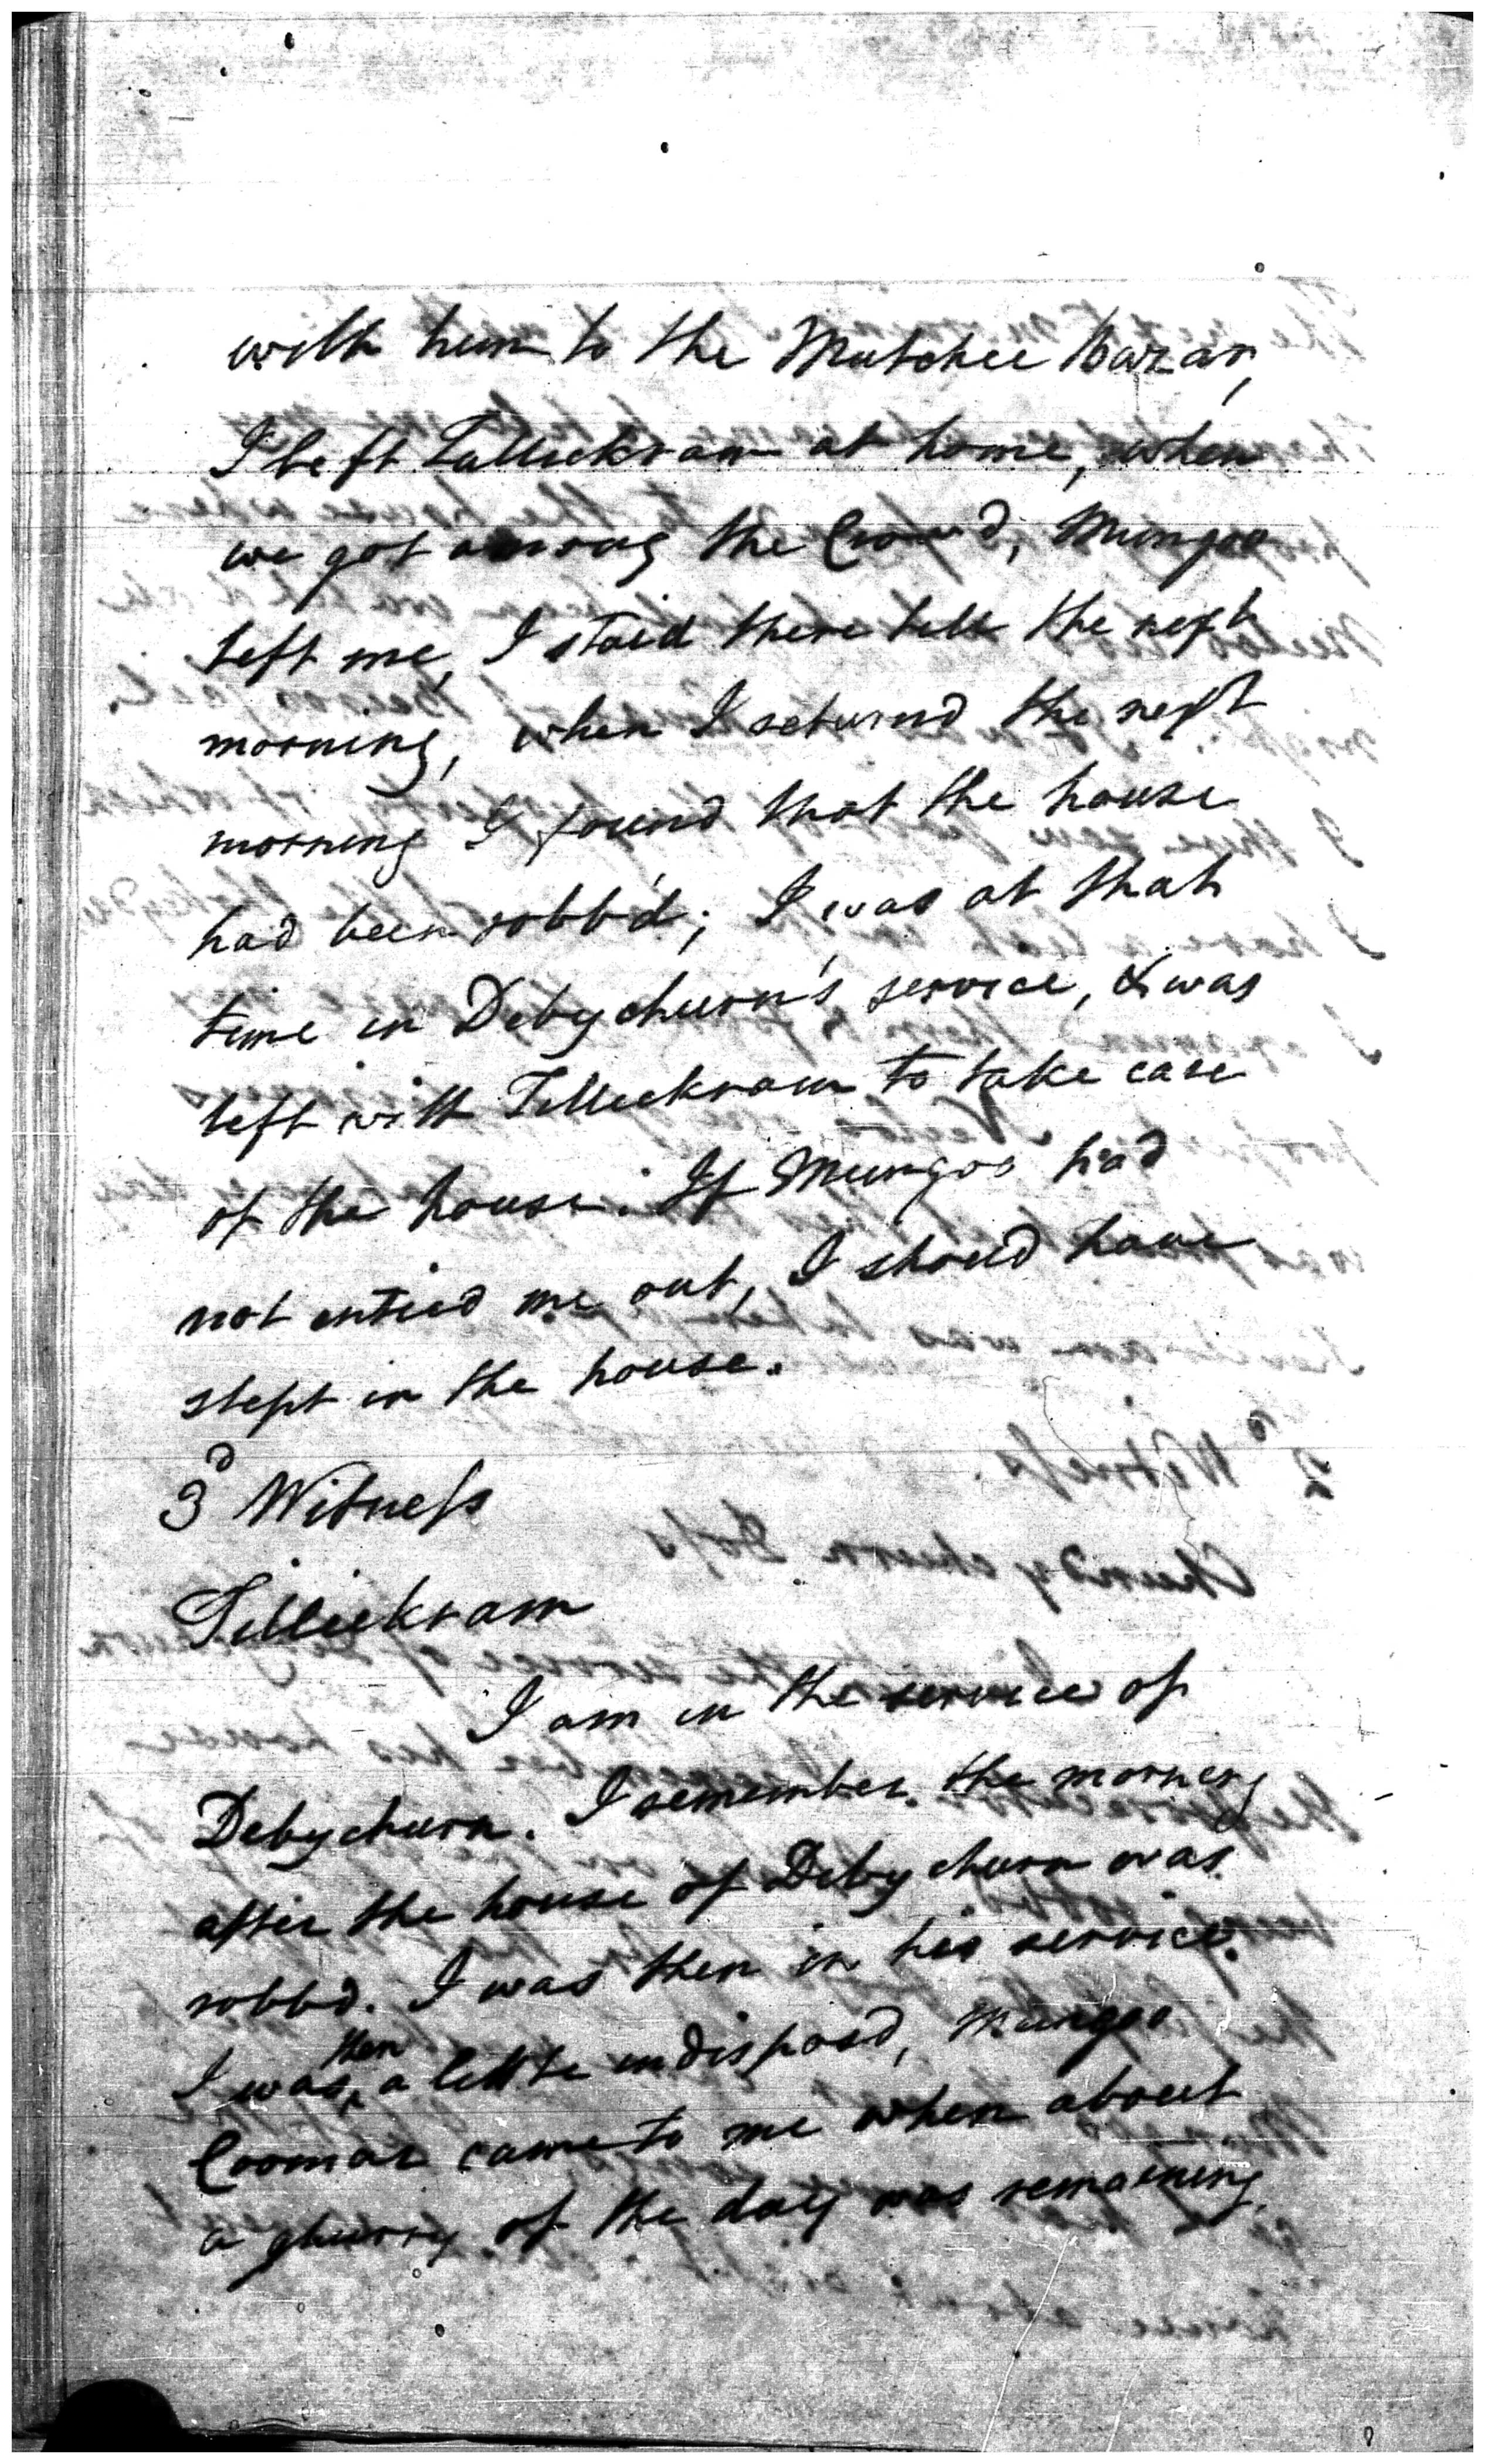 with him to the Mutchee Bazar,
I left Tillickram at home, when
we got among the Crowd, Mungoo
left me, I staid there till the next
morning, when I returnd the next
morning I found that the house
had been robb'd; I was at that
time in Debychurn's service, & was
left with Tillickram to take care
of the house. If Mungoo had
not enticd me out, I should have
slept in the house.
3d Witness
Tillickram
I am in the service of
Debychurn. I remember the morning
after the house of Debychurn was
robbd. I was then in his service.
I was then a little indisposd, Mungoo
Coomar came to me when about
a ghurry of the day was remaining.